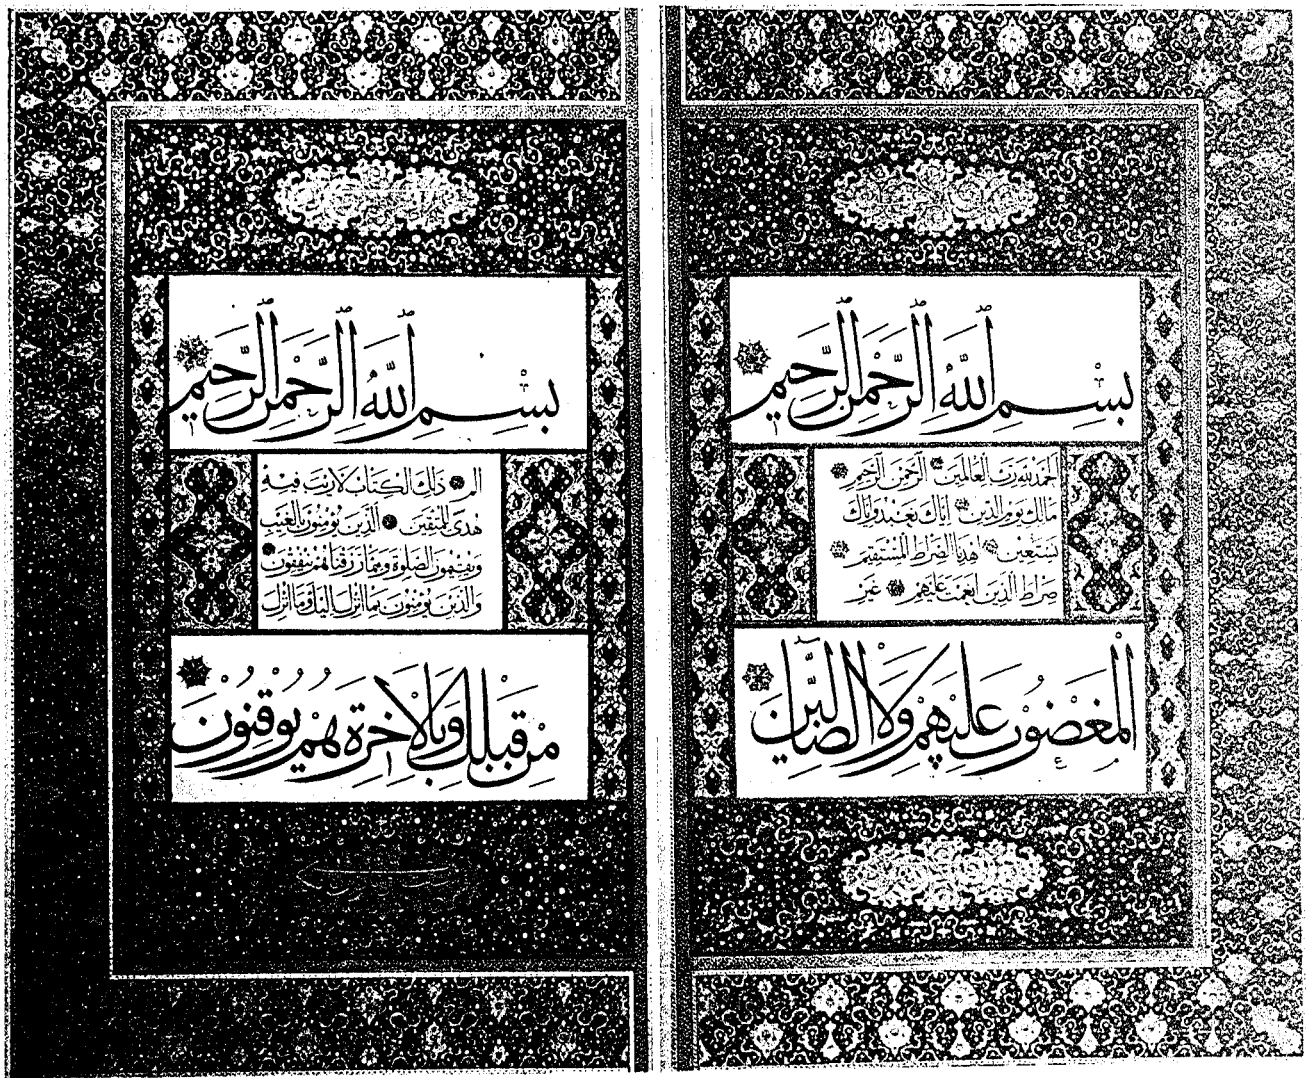 بِسْمِ ٱللَّهِ ٱلرَّحْمٰنِ ٱلرَّحِيمِ
الحمد لله رب العالمين الرحمن الرحيم
مالك يوم الدين اياك نعبد واياك
نستعين اهدنا الصراط المستقيم
صراط الذين انعمت عليهم غير
المغضوب عليهم ولا الضالين
بِسْمِ ٱللَّهِ ٱلرَّحْمٰنِ ٱلرَّحِيمِ
الم ذلك الكتاب لا ريب فيه
هدى للمتقين الذين يؤمنون بالغيب
ويقيمون الصلوة ومما رزقناهم ينفقون
والذين يؤمنون بما انزل اليك وما انزل
من قبلك وبالاخرة هم يوقنون